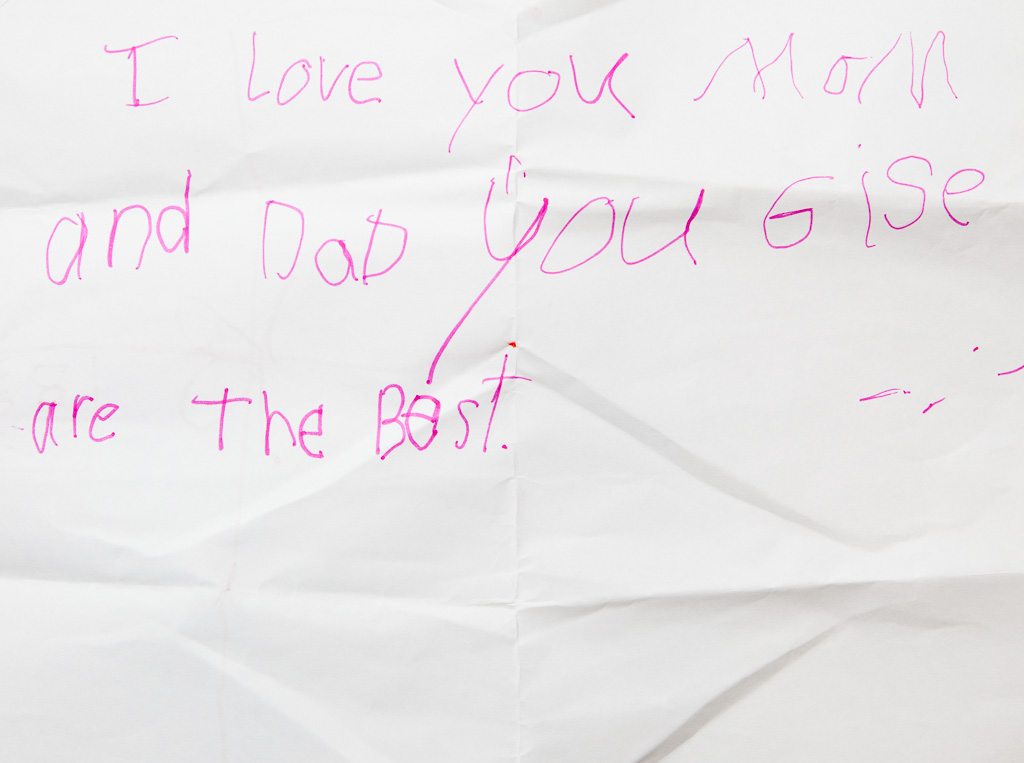 I Love you MoM
and DaD you Gise
are The Best.